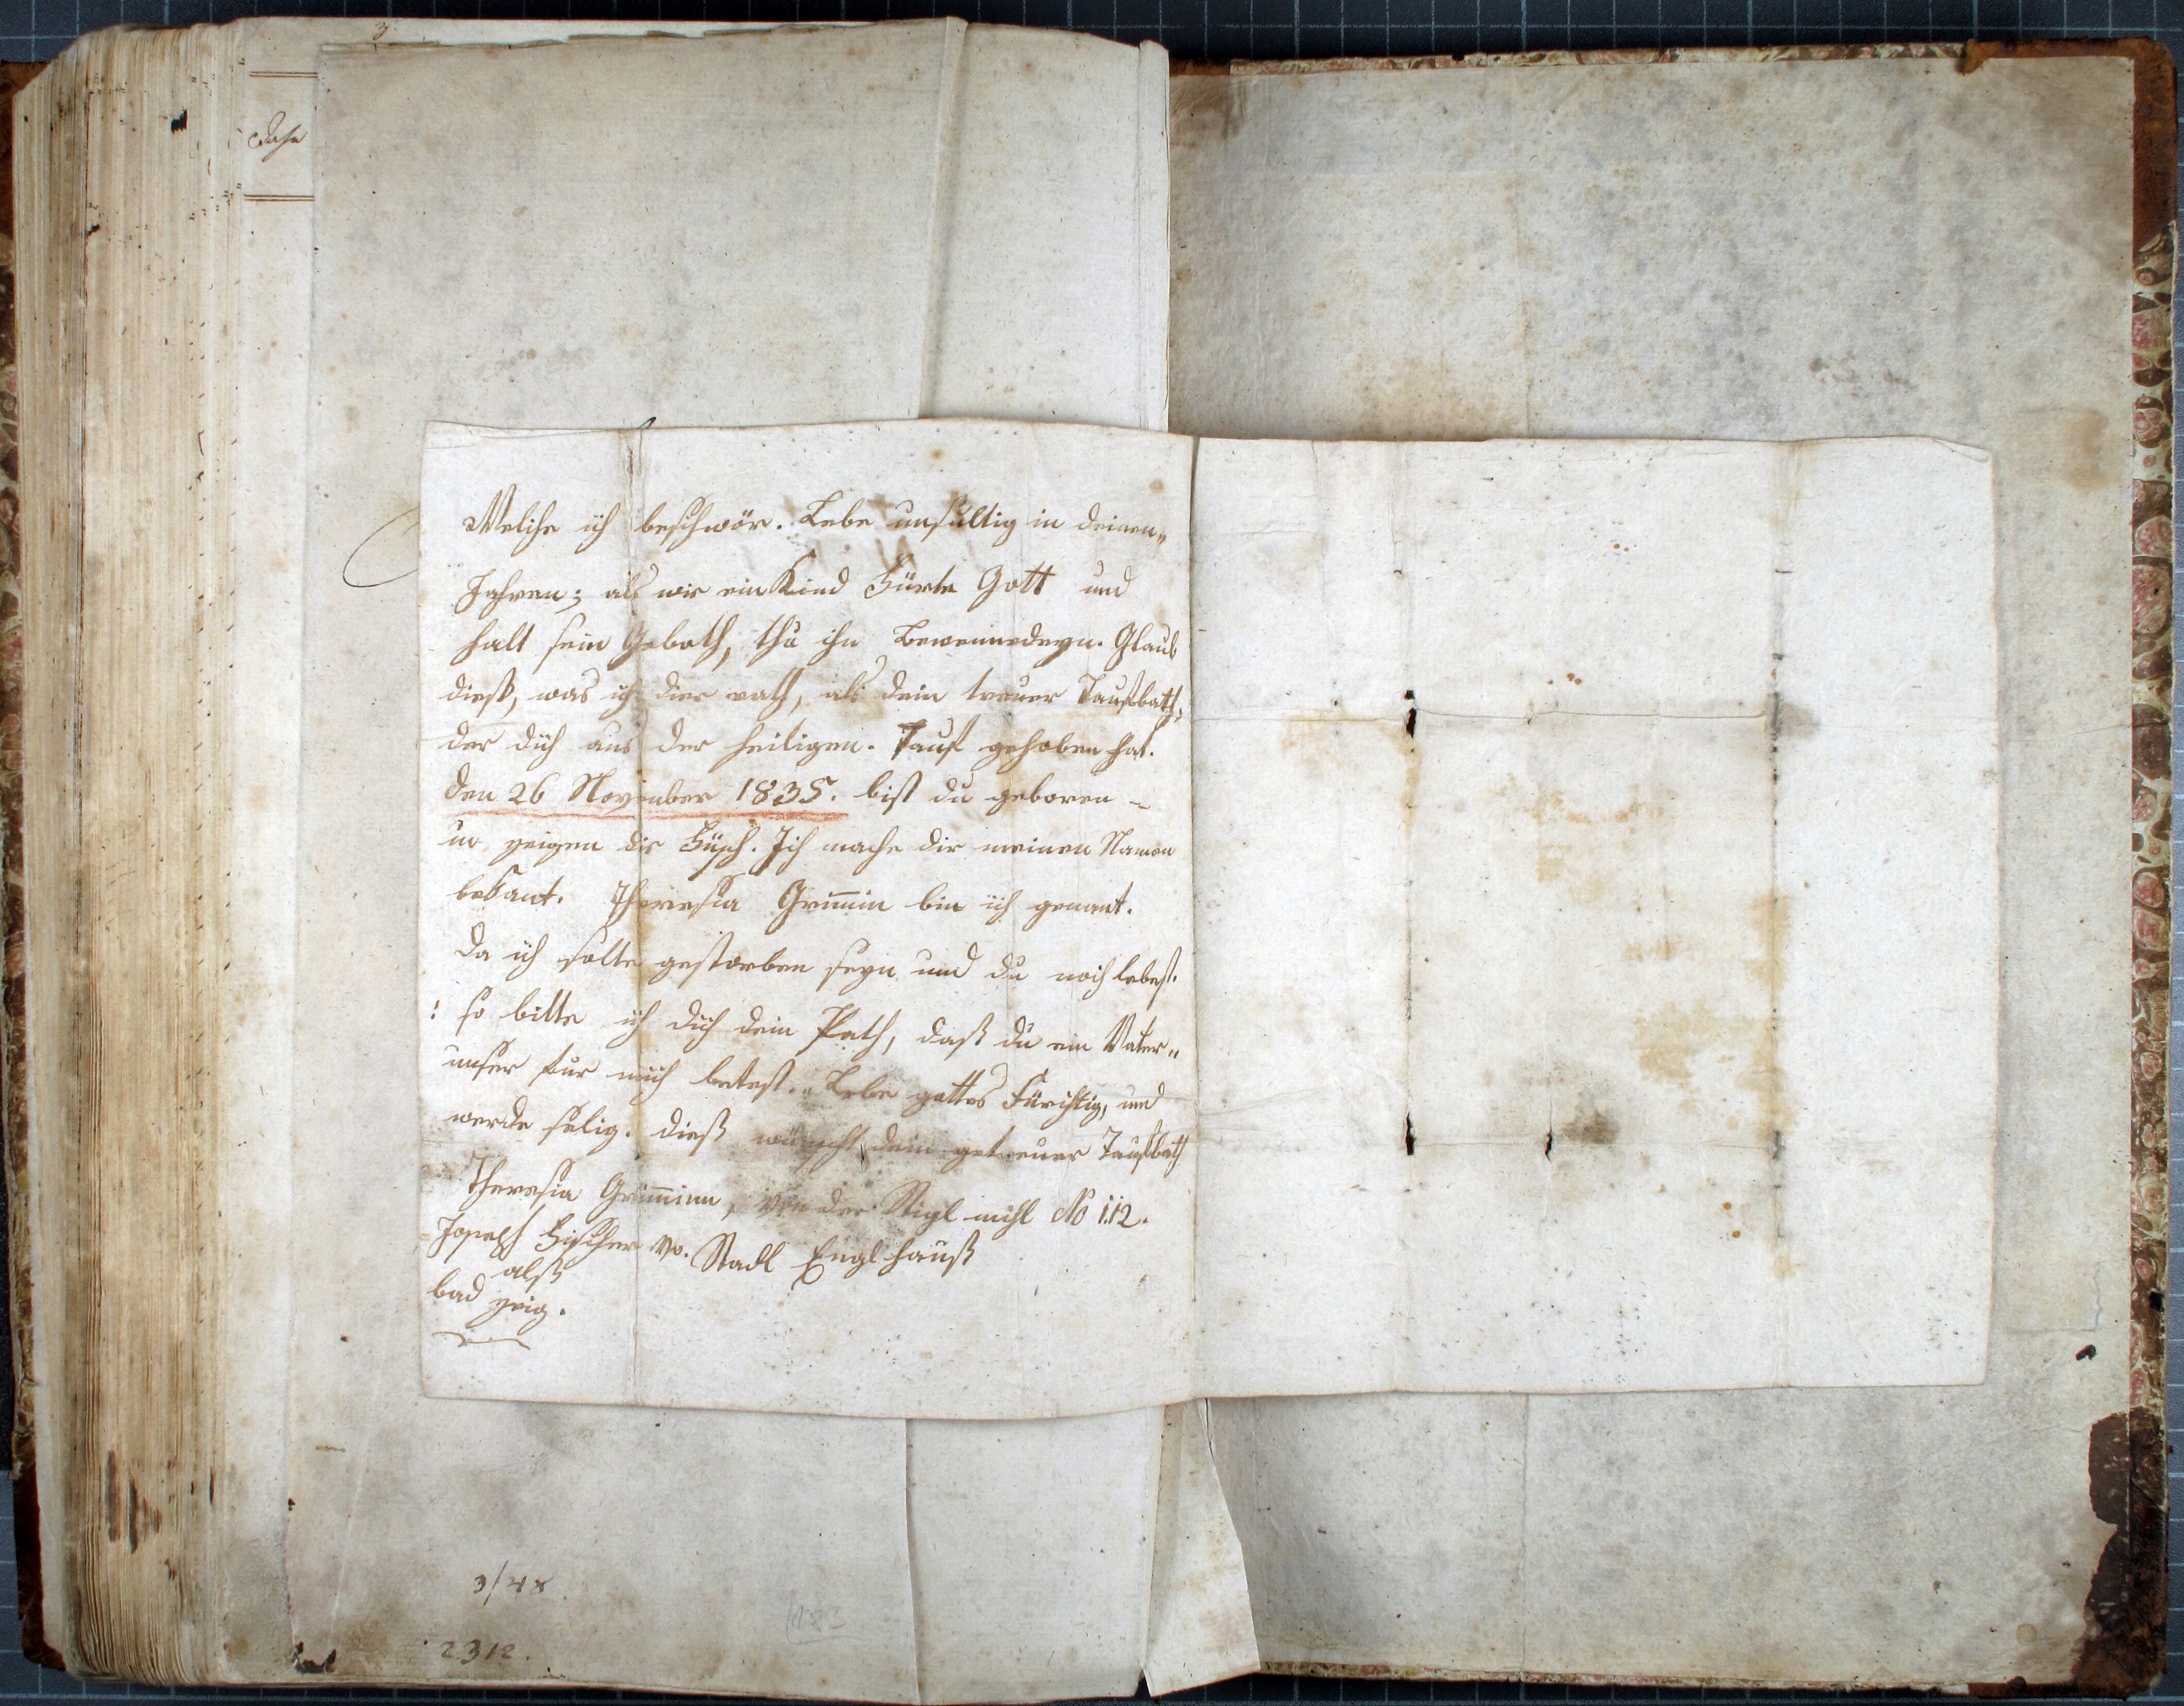 3
Jahr
Welche ich beschwör. Lebe unschultig in deinen„
Jahren; als wir ein Kind Fürte Gott und
halt sein Geboth, thu ihn Glaub
dieß, was ich dier rath, als dein treuer Taufbath,
der dich aus der heiligen. Tauf gehoben hat.
den 26 November 1835. bist du geboren
zeigen dis Ich mache dir meinen Namen
bekant. Theresia Grimin bin ich genant.
Da ich solte gestorben seyn und du noch lebest.
: so bitte ich dich dein Path, daß du ein Vater„
unser fur mich betest. Lebe gottes Fürichtig, und
werde selig. dieß wüscht dein getreuer Taufbath
Theresia Griminn, von der Migl mihl No 112.
Joseph Fischer vo. Stadl Englhauß
alß
bad zeig.
3/48
183
2312.